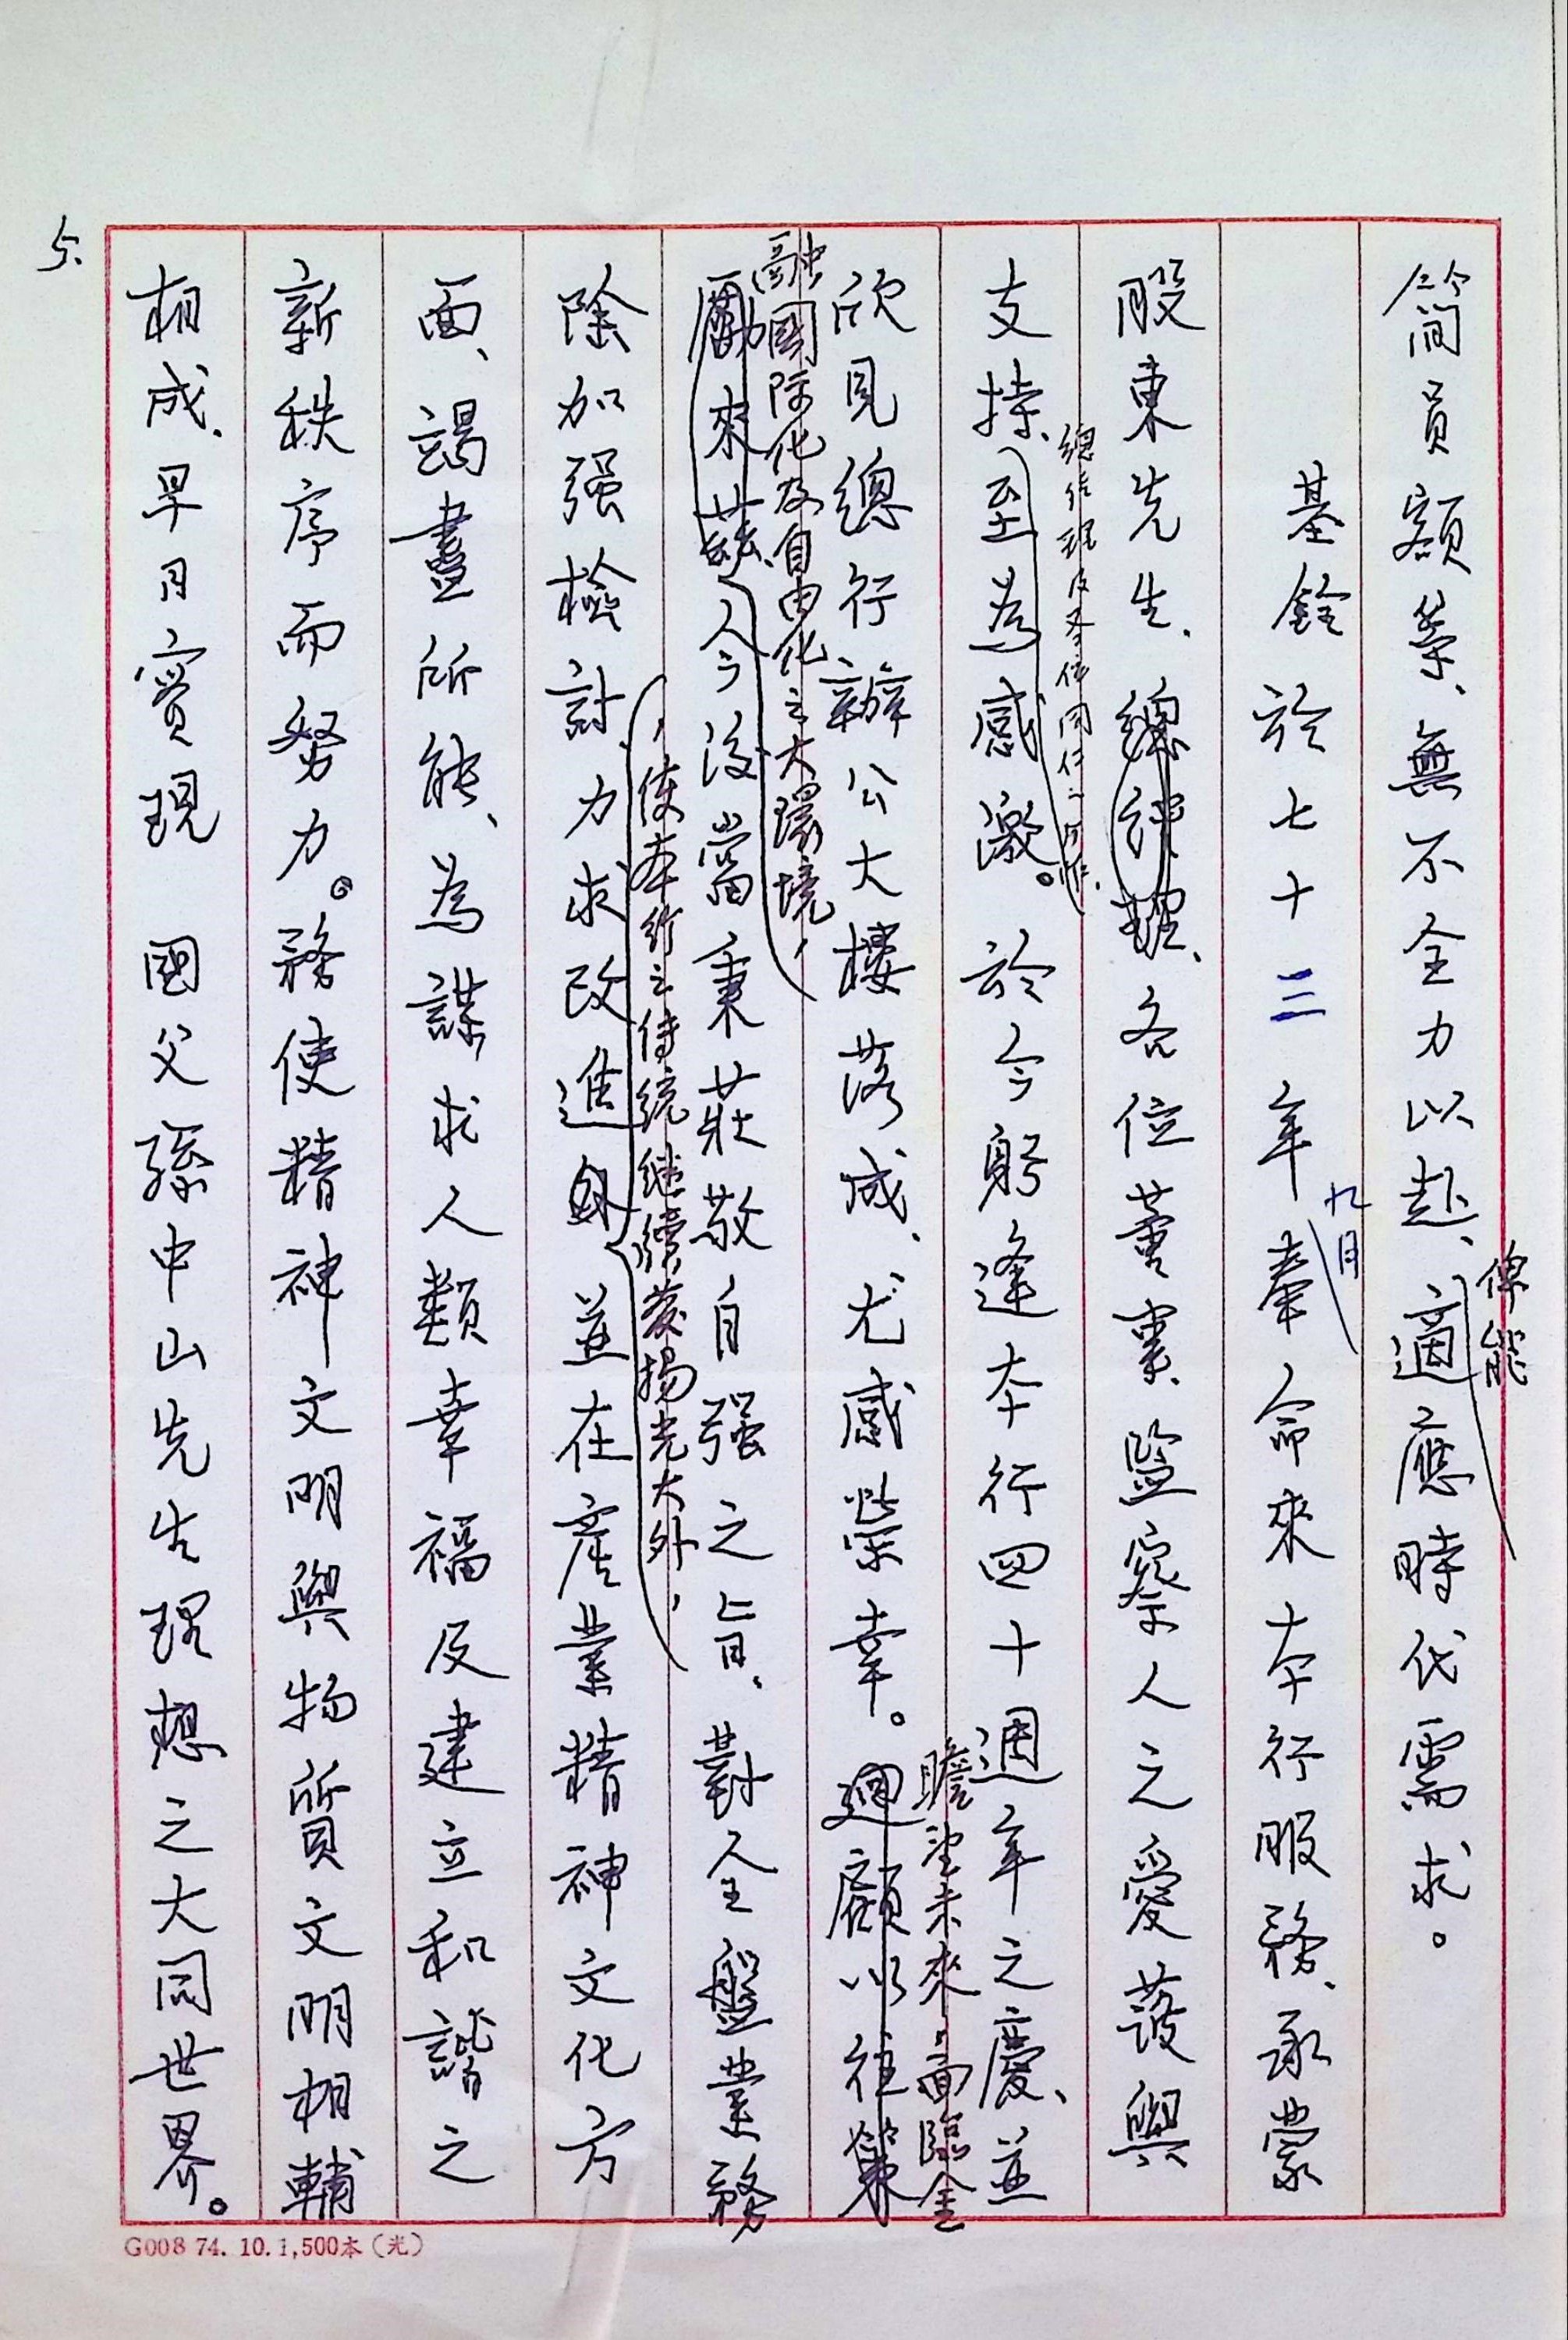 簡員額等、無不全力以赴、適應時代需求。
俾能
基銓於七十三年奉命來本行服務、承蒙
九月
股東先生、總經理、各位董事、監察人之愛護與
總經理及各位同仁之
支持、至為感激。於今躬逢本行四十週年之慶、並
瞻望未來，面臨金
欣見總行辦公大樓落成、尤感榮幸。迴顧以往策
融國際化及自由化之大環境，
勵來茲、今後當秉莊敬自强之旨、對全盤業務
，使本行之传統继續發揚光大外，
除加强檢討力求改進 並在產業精神文化方
面、竭盡所能、為謀求人類幸福及建立和諧之
新秩序而努力。務使精神文明與物質文明相輔
相成、早日實現 國父孫中山先生理想之大同世界。
5.
G008 74. 10. 1,500本（光）